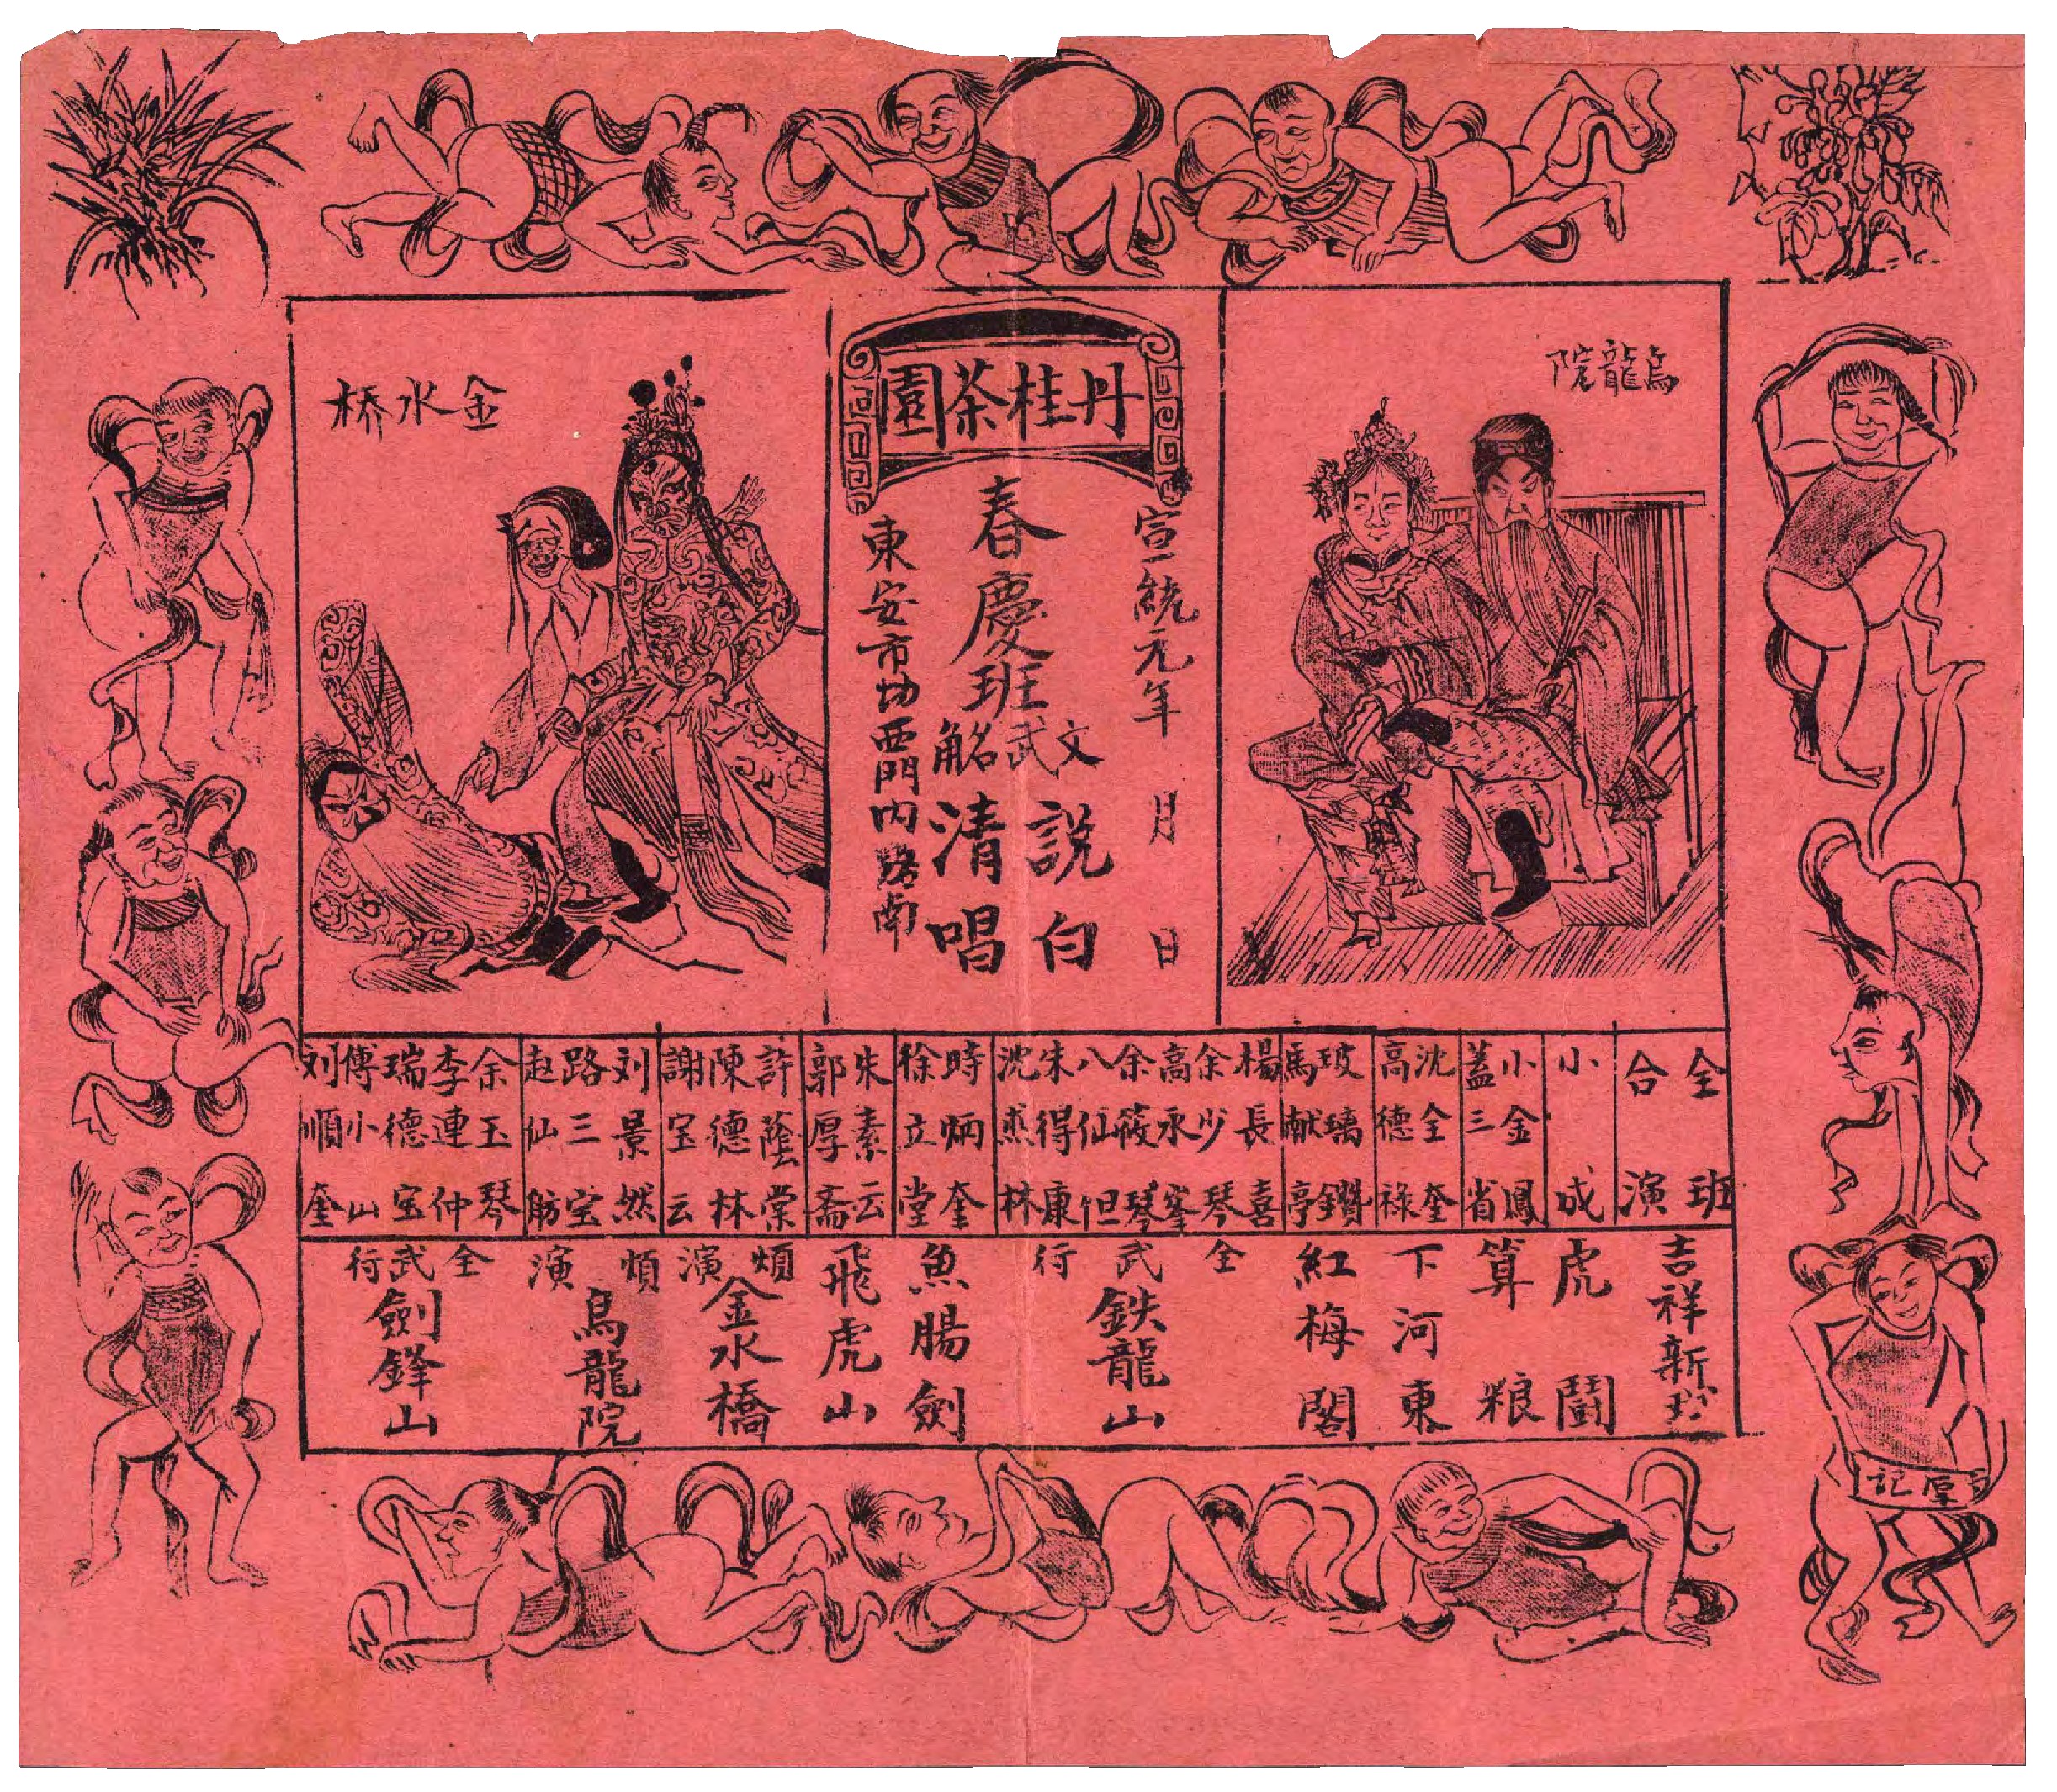 烏龍院
丹桂茶園
宣統元年 月 日
春慶班
文武
說白
清唱
東安市場西門內路南
金水桥
全班合演
小成
小金鳳
蓋三省
沈全奎
高德禄
玻璃鑽
馬献亭
楊長喜
余少琴
高永峯
余筱琴
八仙但
朱得康
沈燕林
時炳奎
徐立堂
朱素云
郭厚斋
許蔭棠
陳德林
謝宝云
刘景然
路三宝
赵仙舫
余玉琴
李連仲
瑞德宝
傅小山
刘順奎
吉祥新戏
虎鬪
算粮
下河東
紅梅閣
全武行
鉄龍山
魚腸劍
飛虎山
煩演
金水橋
煩演
烏龍院
全武行
劍鋒山
厚记